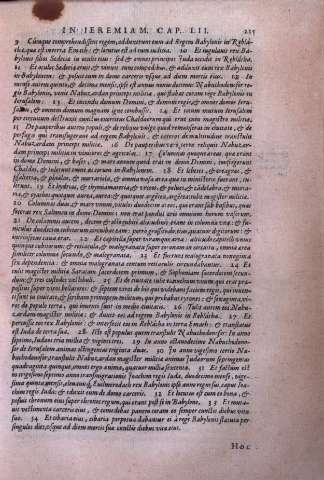 IN IEREMIAM. CAP. LII. 215
9 Cùmque comprehendissent regem, adduxerunt eum ad Regem Babylonis in Reblá-
tha, quæ est in terra Emath: & locutus est ad eum iudicia. 10 Et iugulauit rex Ba-
bylonis filios Sedeciæ in oculis eius: sed & omnes principes Iuda occidit in Reblatha.
11 Et oculos Sedeciæ eruit, & vinxit eum compedibus, & adduxit eum rex Babylonis
in Babylonem: & posuit eum in domo carceris vsque ad diem mortis eius. 12 In
mense autem quinto, decima mensis, ipse est annus nonusdecimus Nabuchodonosor re-
gis Babylonis, venit Nabuzardan princeps militiæ, qui stabat coram rege Babylonis in
Ierusalem. 13 Et incendit domum Domini, & domum regis, & omnes domos Ierusa-
lem, & omnem domum magnam igne combussit. 14 Et totum murum Ierusalem
per circuitum destruxit cunctus exercitus Chaldæorum qui erat cum magistro militiæ.
15 De pauperibus autem populi, & de reliquo vulgo quod remanserat in ciuitate, & de
perfugis qui transfugerant ad regem Babylonis, & ceteros de multitudine transtulit
Nabuzardan princeps militiæ. 16 De pauperibus verò terræ reliquit Nabuzar-
dan princeps militiæ in vinitores, & agricolas. 17 Columnas quoque æreas, quæ erant
in domo Domini, & bases, & mare æneum quod erat in domo Domini, confregerunt
Chaldæi, & tulerunt omne æs eorum in Babylonem. 18 Et lebetes, & creagras, &
psalteria, & phialas, & mortariola, & omnia vasa ærea quæ in ministerio fuerant, tu-
lerunt. 19 Et hydrias, & thymiamateria, & vrceos, & pelues, & candelabra, & morta-
ria, & cyathos quotquot aurea, aurea: & quotquot argentea, argentea tulit magister militiæ.
20 Columnas duas, & mare vnum, vitulos duodecim æreos, qui erant sub basibus, quas
fecerat rex Salomon in domo Domini: non erat pondus æris omnium horum vasorum.
21 De columnis autem, decem & octo cubiti altitudinis erant in columna vna: & fu-
niculus duodecim cubitorum circuibat eam: porro grossitudo eius, quatuor digitorum: &
intrinsecus caua erat. 22 Et capitella super vtramque ærea: altitudo capitelli vnius
quinque cubitorum: & retiacula, & malogranata super coronam in circuitu, omnia ærea.
similiter columnæ secundæ, & malogranata. 23 Et fuerunt malogranata nonaginta
sex dependentia: & omnia malogranata centum retiaculis circundabantur. 24 Et
tulit magister militiæ Saraiam sacerdotem primum, & Sophoniam sacerdotem secun-
dum, & tres custodes vestibuli. 25 Et de ciuitate tulit eunuchum vnum, qui erat præ-
positus super viros bellatores: & septem viros de his qui videbant faciem regis, qui inuen-
ti sunt in ciuitate, & scribam principem militum, qui probabat tyrones: & sexaginta vi-
ros de populo terræ, qui inuenti sunt in medio ciuitatis. 26 Tulit autem eos Nabu-
zardan magister militiæ: & duxit eos ad regem Babylonis in Reblatha. 27 Et
percussit eos rex Babylonis: & interfecit eos in Reblatha in terra Emath: & translatus
est Iuda de terra sua. 28 Iste est populus quem transtulit Nabuchodonosor: In anno
septimo, Iudæos tria millia & vigintitres. 29 In anno octauodecimo Nabuchodono-
sor de Ierusalem animas octingentas triginta duas. 30 In anno vigesimo tertio Na-
buchodonosor, transtulit Nabuzardan magister militiæ animas Iudæorum septingentas
quadraginta quinque. omnes ergo animæ, quatuor millia sexcentæ. 31 Et factum est
in trigesimo septimo anno transmigrationis Ioachim regis Iuda, duodecimo mense, vige-
sima quinta mensis, eleuauit Euilmerodach rex Babylonis ipso anno regni sui, caput Ioa-
chim regis Iuda: & eduxit eum de domo carceris. 32 Et locutus est cum eo bona, &
posuit thronum eius super thronos regum, qui erant post se in Babylone. 33 Et muta-
uit vestimenta carceris eius, & comedebat panem coram eo semper cunctis diebus vitæ
suæ. 34 Et cibaria eius, cibaria perpetua dabantur ei à rege Babylonis statuta per
singulos dies, vsque ad diem mortis suæ cunctis diebus vitæ eius.
Hoc